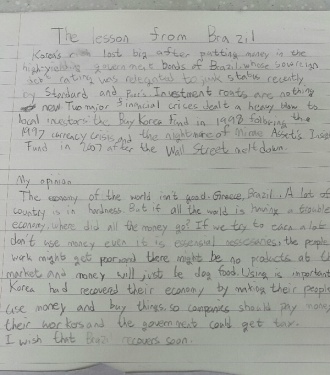 The lesson from Brazil
Korea's lost big after putting money in the
high-yielding government bonds of Brazil, whose sovereign
debt rating was relegated to junk status recently
by Standard and Poor's Investment roots are nothing
new Two major financial crises dealt a heavy blow to
local investors: the Buy Korea Fund in 1998 following the
1997 currency crisis and the nightmare of Mirae Asset's Insight
Fund in 2007 after the Wall Street meltdown.
My opinion
The economy of the world isn't good. Greece, Brazil. A lot of
country is in hardness. But if all the world is having a trouble
economy, where did all the money go? If we try to earn a lot
don't use money even it is essencial nessesaries, the people
work might get poor and there might be no products at the
market and money will just be dog food. Using is important
Korea had recovered their economy by making their people
use money and buy things. so companies should pay money
their workors and the government could get tax.
I wish that Brazil recovers soon.